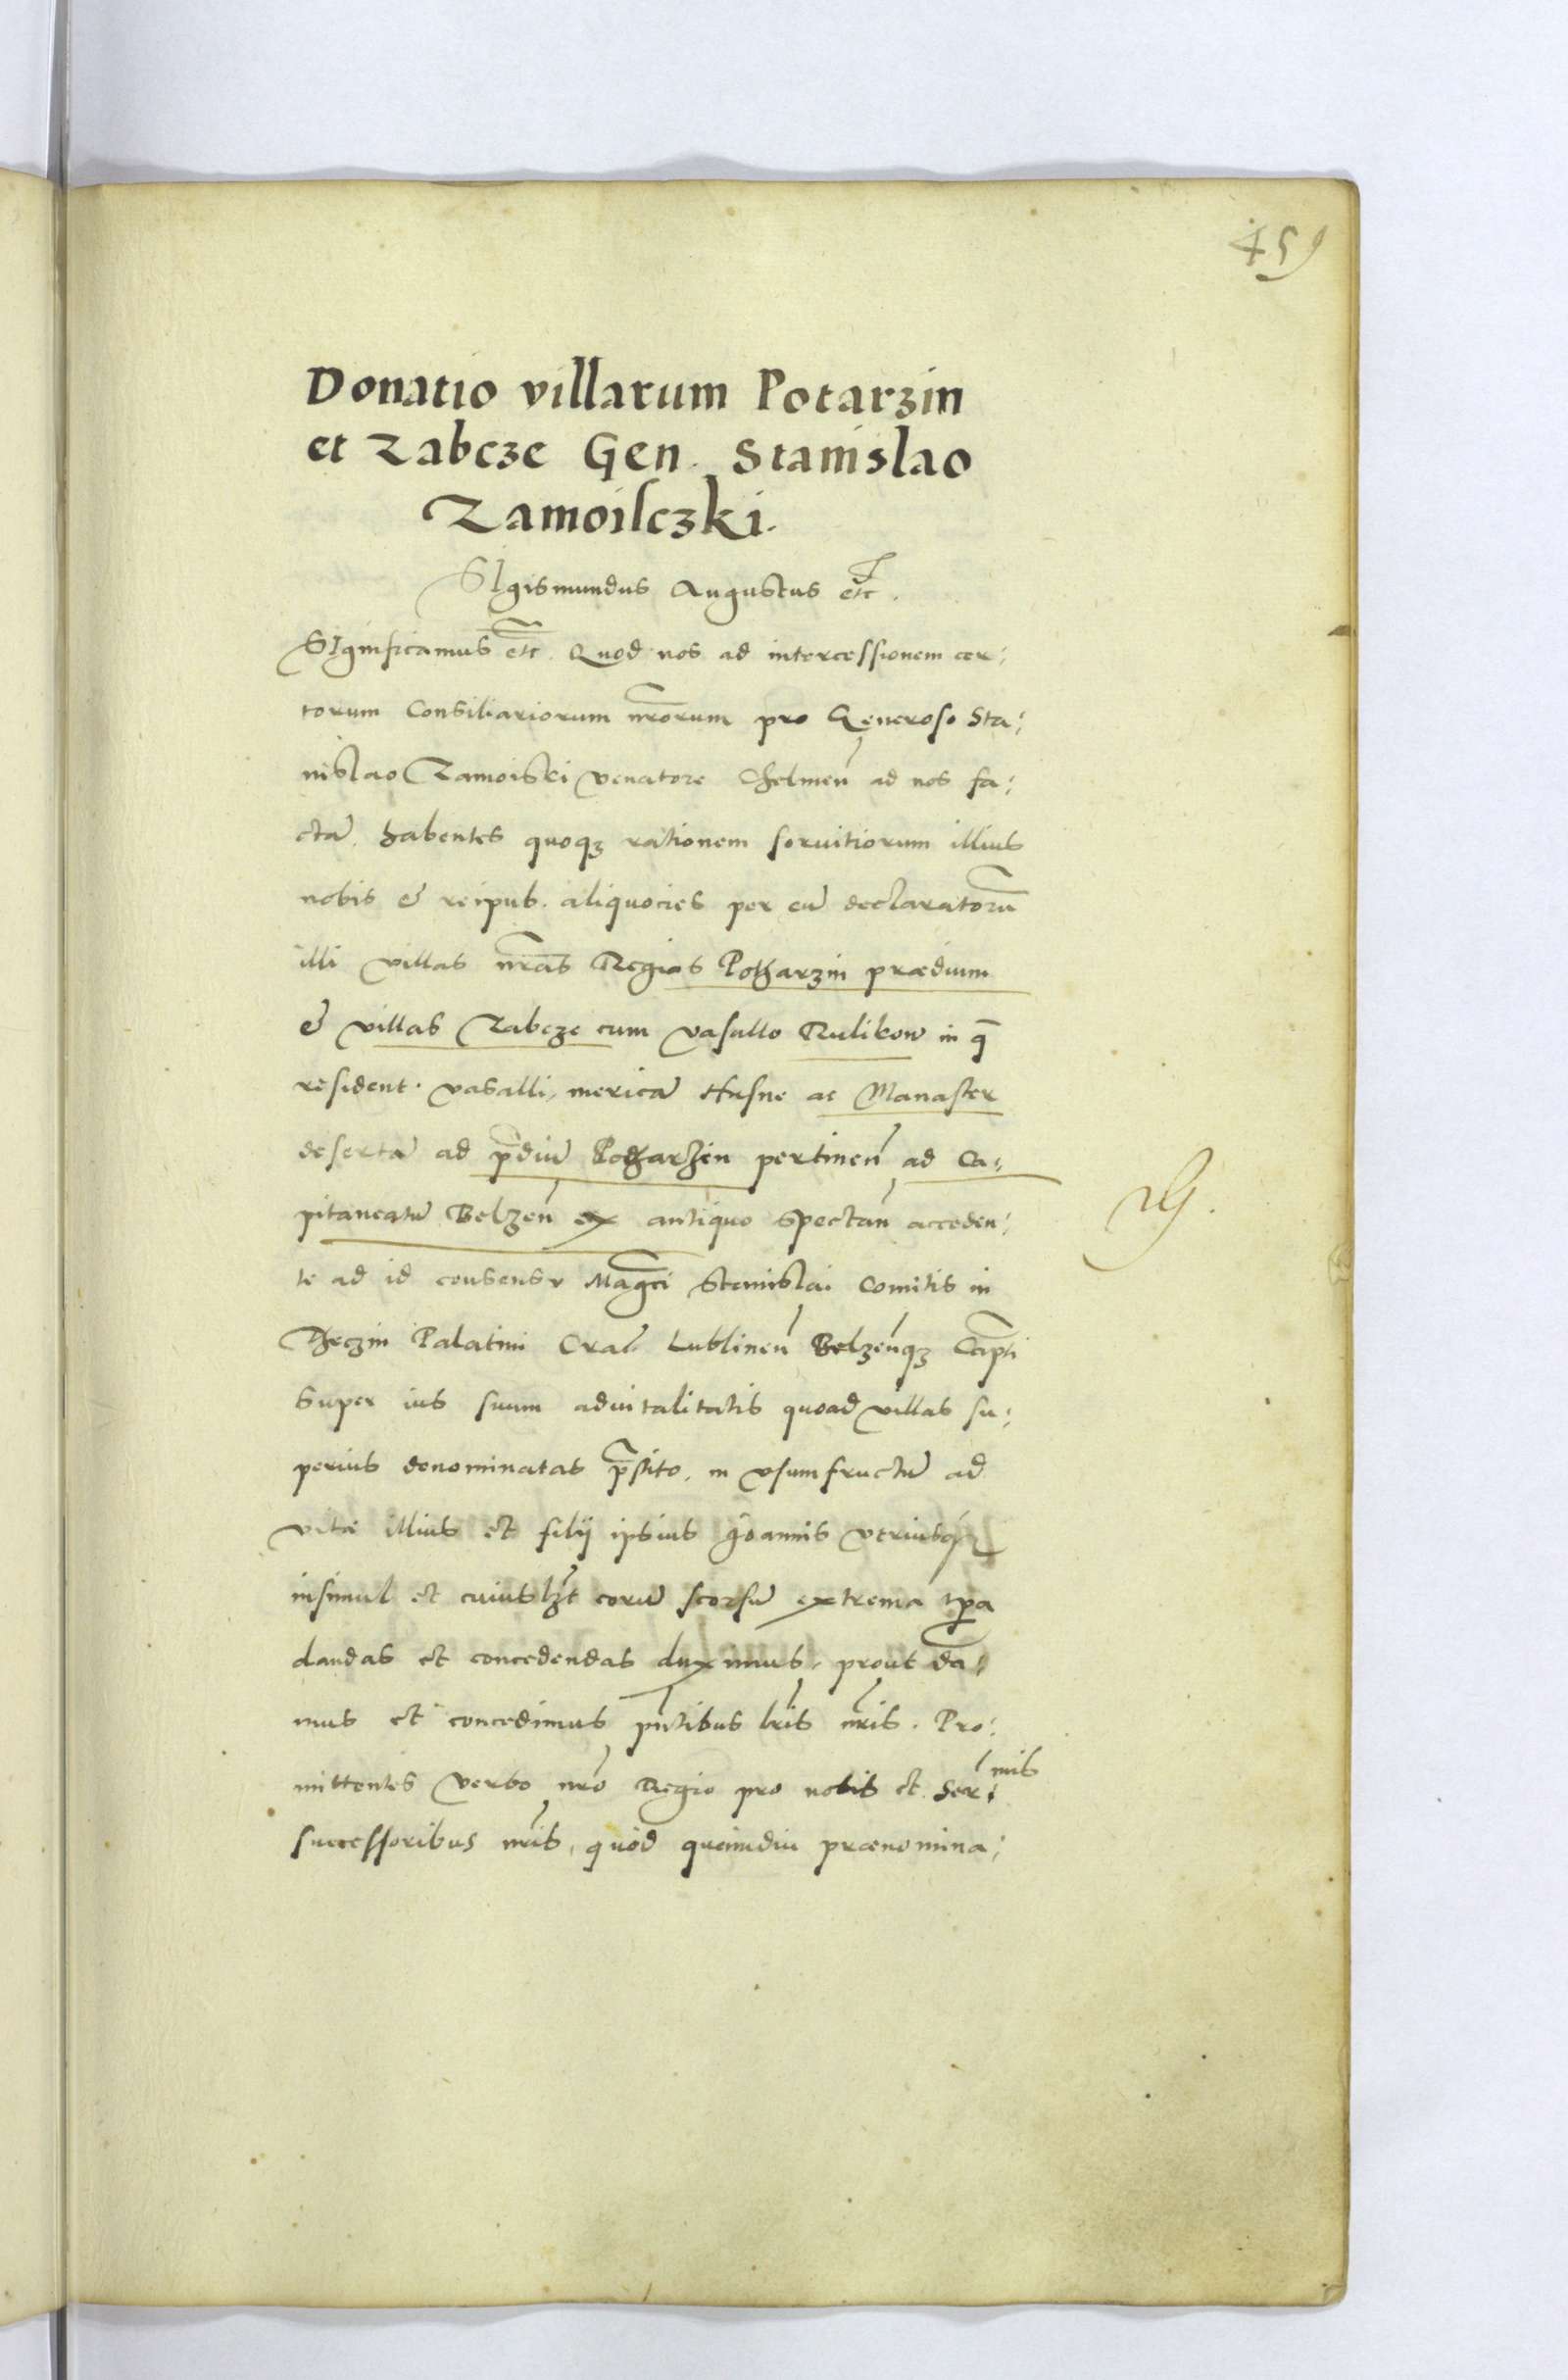 459
Donatio villarum Potarzin
et Zabcze Gen. Stanislao
Zamoisczki.
SIgismundus Augustus etc.
SIgnificamus etc. Quod nos ad intercessionem cer:
torum Consiliariorum nrorum pro Generoso Sta:
nislao Zamoiski venatore Chelmen ad nos fa:
ctã, habentes quoqȝ rationem servitiorum illius
nobis & reipub. aliquocies per eũ declaratorũ
illi villas nras Regias Potharzin prædium
& villas Zabcze cum vasallo Rulikow in q̃
resident vasalli, mericã Husne ac Manaster
desertã ad p̃diũ Potharzin pertinen ad Ca:
pitaneatũ Belzen ex antiquo spectan acceden:
te ad id consensu Magci Stanislai Comitis in
Theczin Palatini Cral Lublinen Belzenqȝ Capti
super ius suum advitalitatis quoad villas su:
perius denominatas p̃stito, in vsumfructũ ad
vitæ illius et filij ipsius Joannis vtriusqȝ
insimul et cuiuslȝt eorũ seorsũ extrema tpa
dandas et concedendas duximus, prout da:
mus et concedimus pntibus lris nris. Pro:
mittentes verbo nro Regio pro nobis et Ser:mis
successoribus nris, quod quamdiu prænomina: